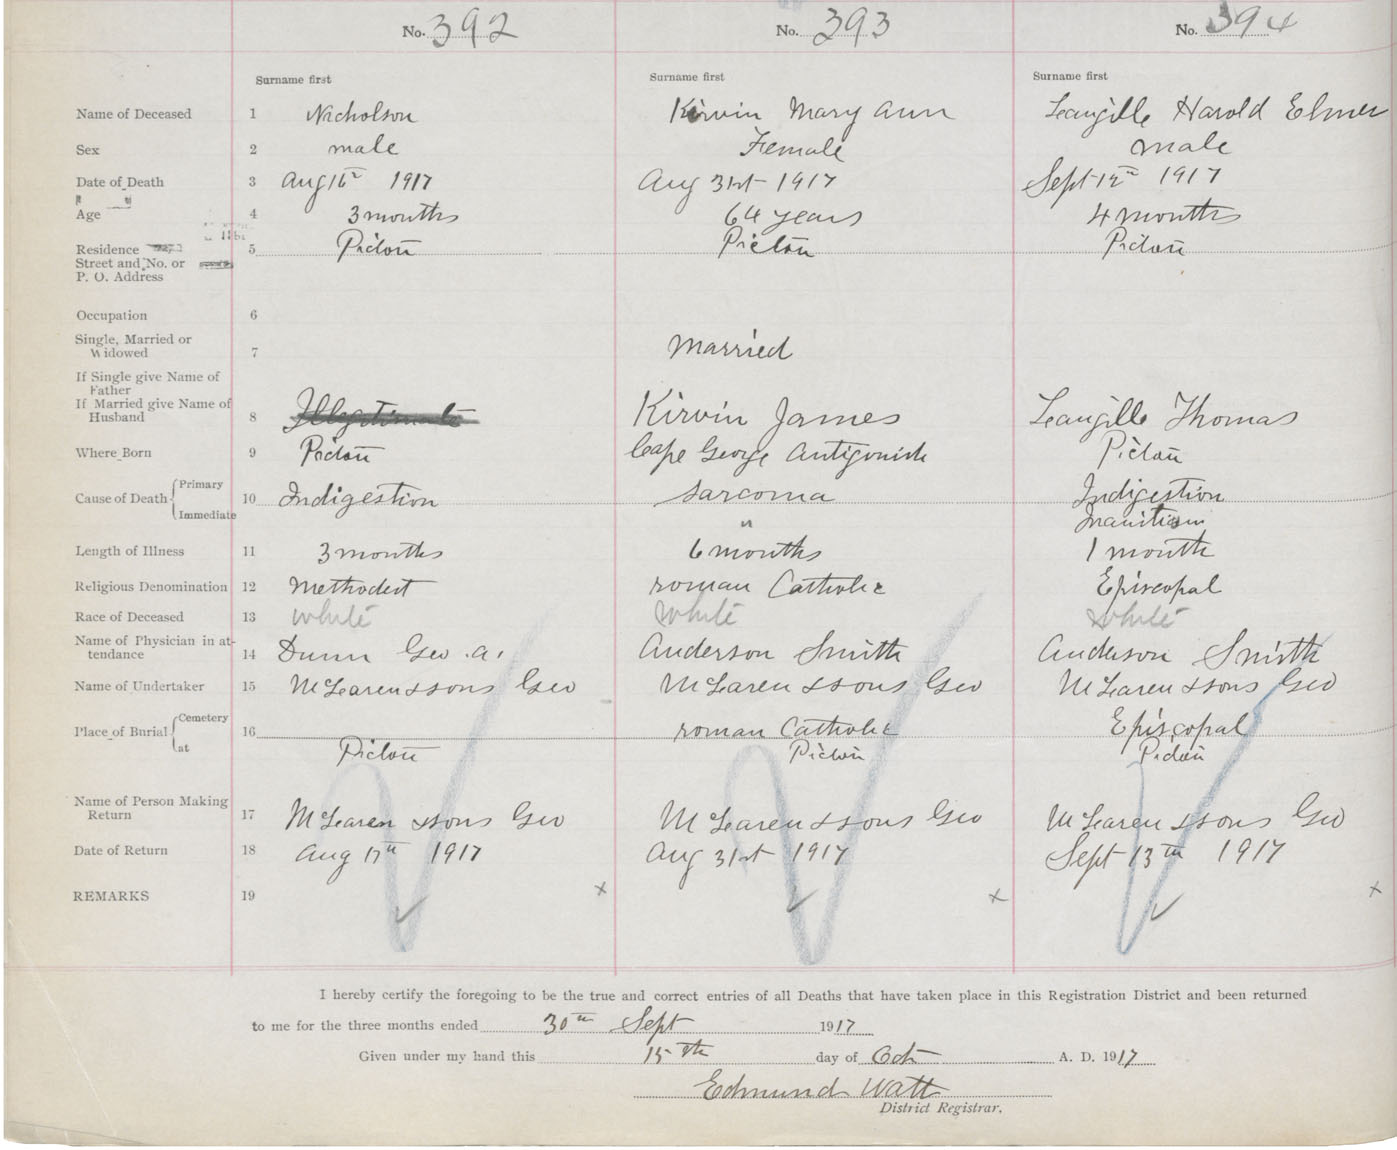 No. 392 No. 393 No. 394
Surname first Surname first Surname first
Name of Deceased 1 Nicholson Kirvin Mary Ann Langille Harold Elmer
Sex 2 male Female male
Date of Death 3 Aug 16th 1917 Aug 31st 1917 Sept 12th 1917
Age 4 3 months 64 years 4 months
Residence 5 Pictou Pictou Pictou
Street and No. or
P. O. Address
Occupation 6
Single, Married or
Widowed 7 Married
If Single give Name of
Father
If Married give Name of
Husband 8 Illegitimate Kirvin James Langille Thomas
Where Born 9 Pictou Cape George Antigonish Pictou
Cause of Death Primary 10 Indigestion Sarcoma Indigestion
Immediate " Inanition
Length of Illness 11 3 months 6 months 1 month
Religious Denomination 12 Methodist Roman Catholic Episcopal
Race of Deceased 13 White White White
Name of Physician in at-
tendance 14 Dunn Geo. A. Anderson Smith Anderson Smith
Name of Undertaker 15 McLaren & Sons Geo McLaren & Sons Geo McLaren & Sons Geo
Place of Burial Cemetery 16 Roman Catholic Episcopal
at Pictou Pictou Pictou
Name of Person Making
Return 17 McLaren & Sons Geo McLaren & Sons Geo McLaren & Sons Geo
Date of Return 18 Aug 17th 1917 Aug 31st 1917 Sept 13th 1917
REMARKS 19 x x x
I hereby certify the foregoing to be the true and correct entries of all Deaths that have taken place in this Registration District and been returned
to me for the three months ended 30th Sept 1917
Given under my hand this 15th day of Oct A. D. 1917
Edmund Watt
District Registrar.